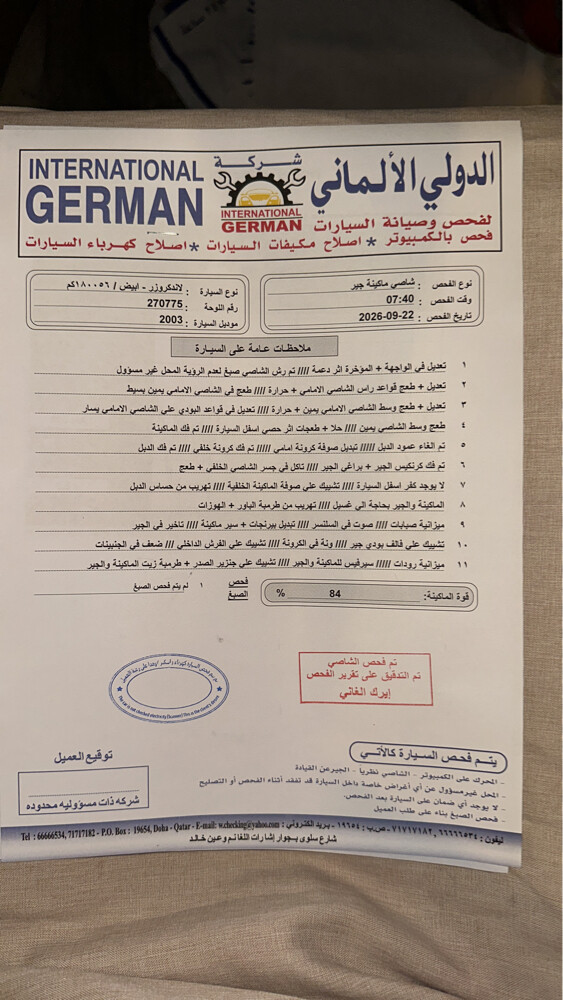 INTERNATIONAL
GERMAN
شركة
INTERNATIONAL
GERMAN
الدولي الألماني
لفحص وصيانة السيارات
فحص بالكمبيوتر * اصلاح مكيفات السيارات * اصلاح كهرباء السيارات
نوع الفحص : شاصي ماكينة جير
وقت الفحص : 07:40
تاريخ الفحص : 2026-09-22
نوع السيارة : لاندكروزر - ابيض / ١٨٠٠٥٦كم
رقم اللوحة : 270775
موديل السيارة : 2003
ملاحظات عامة على السيارة
١ تعديل في الواجهة + المؤخرة اثر دعمة //// تم رش الشاصي صبغ لعدم الرؤية المحل غير مسؤول
٢ تعديل + طعج قواعد راس الشاصي الامامي + حرارة //// طعج في الشاصي الامامي يمين بسيط
٣ تعديل + طعج وسط الشاصي الامامي يمين + حرارة //// تعديل في قواعد البودي علي الشاصي الامامي يسار
٤ طعج وسط الشاصي يمين //// حلا + طعجات اثر حصي اسفل السيارة //// تم فك الماكينة
٥ تم الغاء عمود الدبل ///// تبديل صوفة كرونة امامي ///// تم فك كرونة خلفي //// تم فك الدبل
٦ تم فك كرنكيس الجير + براغي الجير //// تاكل في جسر الشاصي الخلفي + طعج
٧ لا يوجد كفر اسفل السيارة //// تشييك علي صوفة الماكينة الخلفية //// تهريب من حساس الدبل
٨ الماكينة والجير بحاجة الي غسيل //// تهريب من طرمبة الباور + الهوزات
٩ ميزانية صبابات //// صوت في السلنسر //// تبديل بيرنجات + سير ماكينة //// تاخير في الجير
١٠ تشييك علي فالف بودي جير //// ونة في الكرونة //// تشييك علي الفرش الداخلي /// ضعف في الجنبينات
١١ ميزانية رودات ///// سيرفيس للماكينة والجير //// تشييك علي جنزير الصدر + طرمبة زيت الماكينة والجير
قوة الماكينة: 84 %
فحص الصبغ
١ لم يتم فحص الصبغ
تم فحص الشاصي
تم التدقيق على تقرير الفحص
إيرك الغاني
يتم فحص السيارة كالآتي
- المحرك على الكمبيوتر - الشاصي نظريا - الجير عن القيادة
- المحل غير مسؤول عن أي أغراض خاصة داخل السيارة قد تفقد أثناء الفحص أو التصليح
- لا يوجد أي ضمان على السيارة بعد الفحص.
- فحص الصبغ بناء على طلب العميل
توقيع العميل
شركة ذات مسؤوليه محدوده
تيلفون : ٦٦٦٦٦٥٣٤، ٧١٧١٧١٨٢ - ص.ب : ١٩٦٥٤ - بريد الكتروني : Tel : 66666534, 71717182 - P.O. Box : 19654, Doha - Qatar - E-mail: w.checking@yahoo.com
شارع سلوى بجوار إشارات اللغانم وعين خالد